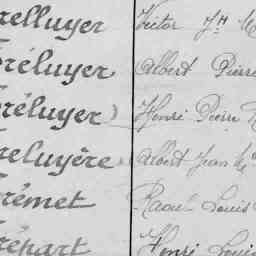 relluyer Victor J.H
réluyer Albert Pierre
réluyer) Henri Pierre
reluyère Albert Jean
rémet Raoul Louis
répart Henri Louis